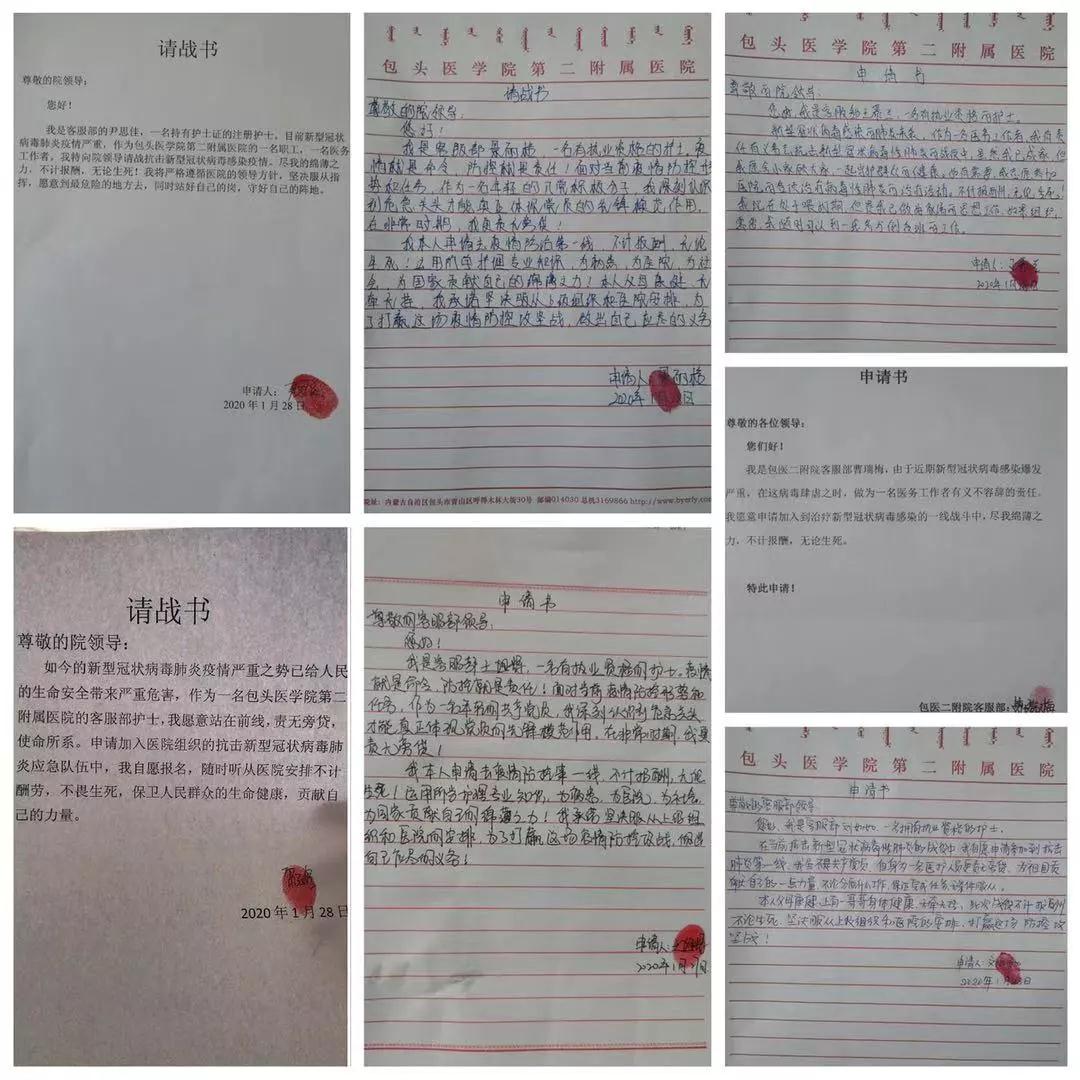 请战书
尊敬的院领导：
您好！
我是客服部的尹思佳，一名持有护士证的注册护士，目前新型冠状
病毒肺炎疫情严重，作为包头医学院第二附属医院的一名职工，一名医务
工作者，我特向院领导请战抗击新型冠状病毒感染疫情。尽我的绵薄之
力，不计报酬，无论生死！我将严格遵循医院的领导方针，坚决服从指
挥，愿意到最危险的地方去，同时站好自己的岗，守好自己的阵地。
申请人：
2020 年 1 月 28 日
包头医学院第二附属医院
请战书
尊敬的院领导：
您好！
我是客服部 一名有执业资格的护士，疫
情就是命令，防控就是责任！面对当前疫情防控形
势和任务，作为一名年轻的入党积极分子，我深刻认识
到危急关头才能真正体现党员的先锋模范作用，
在非常时期，我更责无旁贷！
我本人申请去疫情防治第一线，不计报酬，无论
生死！运用所学护理专业知识，为病患，为医院，为社
会，为国家贡献自己的绵薄之力！本人父母康健，无
牵无挂，我承诺坚决服从上级组织和医院安排，为
了打赢这场疫情防控攻坚战，做出自己应尽的义务
申请人
2020年1月 日
院址：内蒙古自治区包头市青山区呼得木林大街30号 邮编014030 总机3169866 http://www.byerfy.com
包头医学院第二附属医院
申请书
尊敬的院领导：
您好，我是客服部 一名有执业资格的护士。
2020年1月 日
申请书
尊敬的各位领导：
您们好！
我是包医二附院客服部曹瑞梅，由于近期新型冠状病毒感染爆发
严重，在这病毒肆虐之时，做为一名医务工作者有义不容辞的责任。
我愿意申请加入到治疗新型冠状病毒感染的一线战斗中，尽我绵薄之
力，不计报酬，无论生死。
特此申请！
包医二附院客服部：
请战书
尊敬的院领导：
如今的新型冠状病毒肺炎疫情严重之势已给人民
的生命安全带来严重危害，作为一名包头医学院第二
附属医院的客服部护士，我愿意站在前线，责无旁贷，
使命所系。申请加入医院组织的抗击新型冠状病毒肺
炎应急队伍中，我自愿报名，随时听从医院安排不计
酬劳，不畏生死，保卫人民群众的生命健康，贡献自
己的力量。
2020 年 1 月 28 日
申请书
尊敬的客服部领导：
您好！
我是客服护士 ，一名有执业资格的护士。疫情
就是命令，防控就是责任！面对当前疫情防控形势和
任务，作为一名 共产党员，我深刻认识到危急关头
才能真正体现党员的先锋模范作用，在非常时期，我更
责无旁贷！
我本人申请去疫情防控第一线，不计报酬，无论
生死！运用所学护理专业知识，为病患，为医院，为社会，
为国家贡献自己的绵薄之力！我承诺坚决服从上级组
织和医院的安排，为了打赢这场疫情防控攻坚战，做出
自己应尽的义务！
申请人
2020年1月27日
包头医学院第二附属医院
申请书
尊敬的客服部领导
您好，我是客服部 ，一名拥有执业资格的护士。
本人父母康健，上有一哥哥身体健康，无牵无挂，此次战役不计报酬
不论生死，坚决服从上级组织和医院的安排，打赢这场防控攻
坚战！
申请人：
2020年1月28日